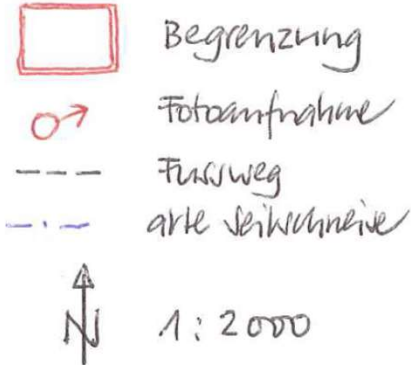 Begrenzung
Fotoaufnahme
Fussweg
alte Seilschneise
N 1:2000